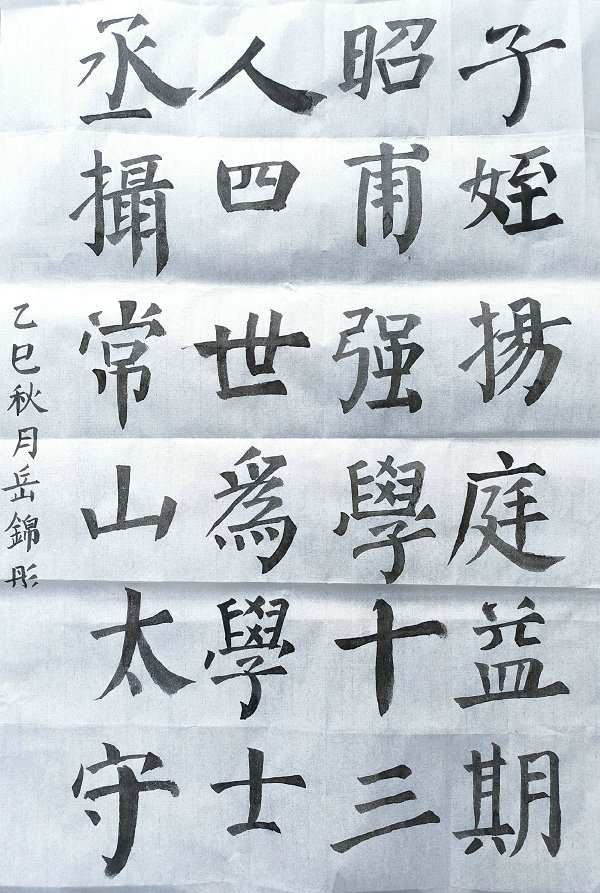 子姪揚庭益期
昭甫强學十三
人四世為學士
丞攝常山太守
乙巳秋月岳錦彤